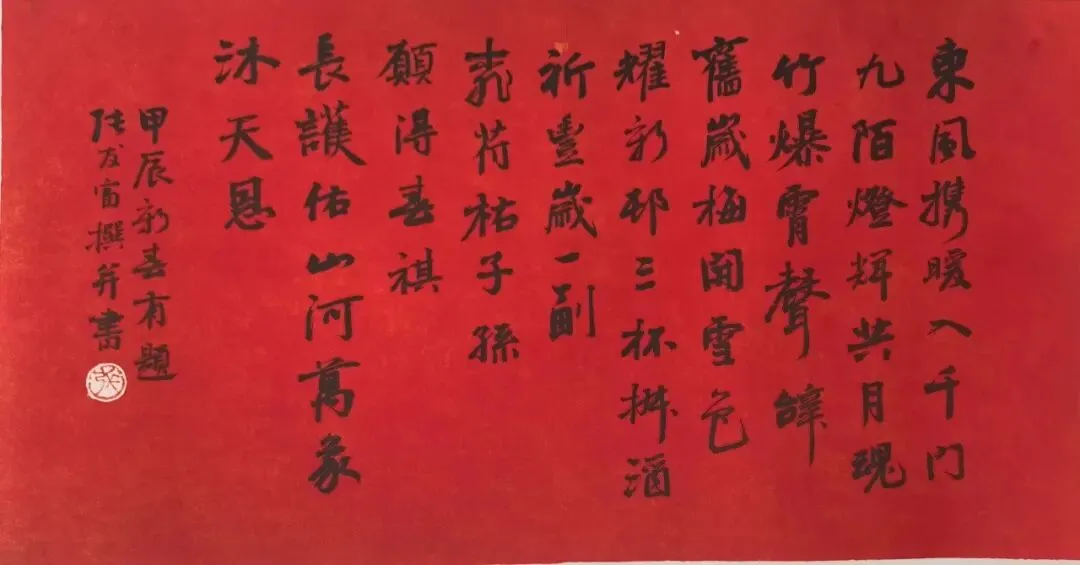 東風携暖入千門
九陌燈輝共月魂
竹爆霄聲辭
舊歲梅開雪色
耀新邨三杯椒酒
祈豐歲一副
桃符祐子孫
願得春祺
長護佑山河萬象
沐天恩
甲辰新春有題
友富撰并書